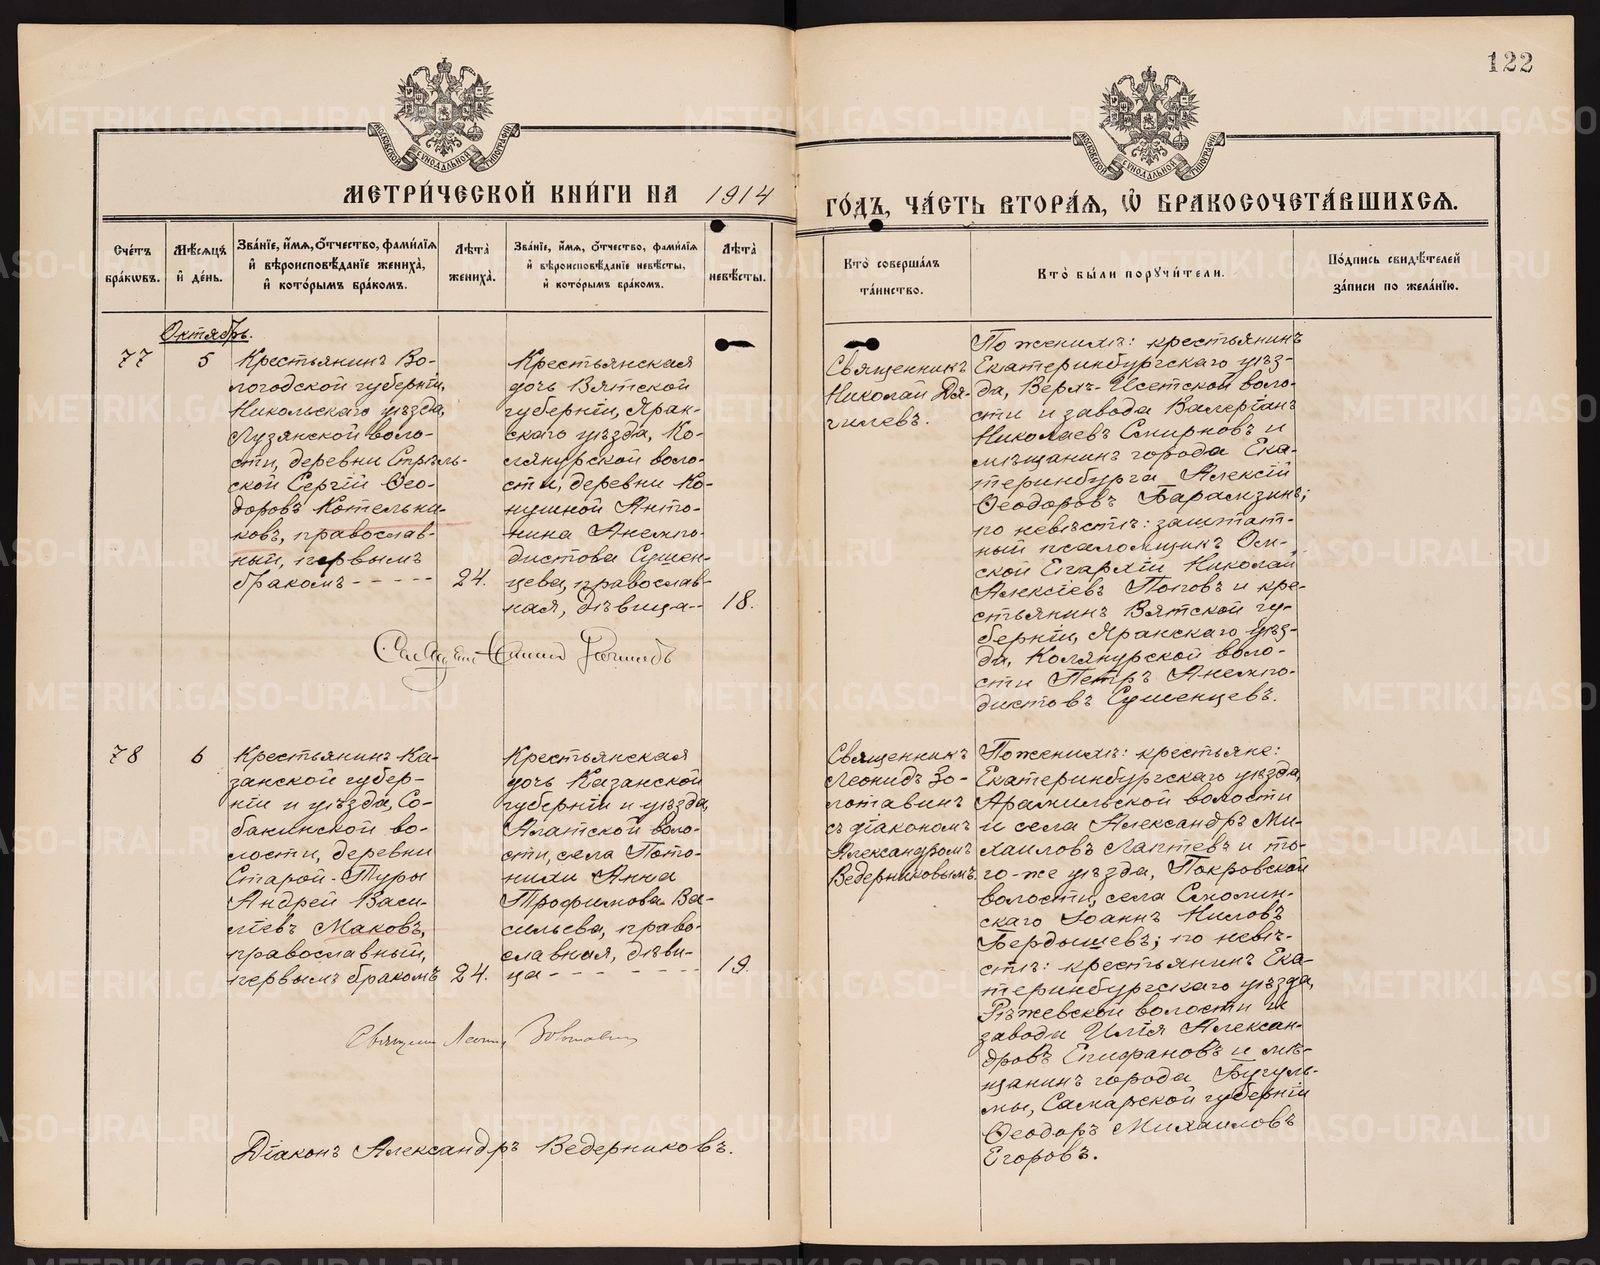 122
МОСКОВСКОЙ СѴНОДАЛЬНОЙ ТИПОГРАФІИ
МОСКОВСКОЙ СѴНОДАЛЬНОЙ ТИПОГРАФІИ
МЕТРИ́ЧЕСКОЙ КНИ́ГИ НА 1914
ГО́ДЪ, ЧА́СТЬ ВТОРА́Я, Ѡ҆ БРАКОСОЧЕТА́ВШИХСЯ.
Сче́тъ бра́кѡвъ.
Мѣ́сяцъ и҆ де́нь.
Зва́нїе, и҆́мя, ѻ҆́тчество, фами́лїя и҆ вѣроисповѣ́данїе жениха̀, и҆ кото́рымъ бра́комъ.
Лѣ́та жениха̀.
Зва́нїе, и҆́мя, ѻ҆́тчество, фами́лїя и҆ вѣроисповѣ́данїе невѣ́сты, и҆ кото́рымъ бра́комъ.
Лѣ́та невѣ́сты.
Кто̀ соверша́лъ та́инство.
Кто̀ бы́ли порꙋчи́тели.
По́дпись свидѣ́телей за́писи по жела́нїю.
Октябрь.
77
5
Крестьянинъ Во-
логодской губерніи,
Никольскаго уѣзда,
Лузянской воло-
сти, деревни Стрѣль-
ской Сергій Ѳео-
доровъ Котельни-
ковъ, православ-
ный, первымъ
бракомъ-----
24.
Крестьянская
дочь Вятской
губерніи, Яран-
скаго уѣзда, Ко-
лянурской воло-
сти, деревни Ко-
нушной Анто-
нина Анемпо-
дистова Сушен-
цева, православ-
ная, дѣвица--
18.
Священникъ
Николай Дя-
гилевъ.
По женихѣ: крестьянинъ
Екатеринбургскаго уѣз-
да, Верхъ-Исетской воло-
сти и завода Валеріанъ
Николаевъ Смирновъ и
мѣщанинъ города Ека-
теринбурга Алексій
Ѳеодоровъ Барамзинъ;
по невѣстѣ: заштат-
ный псаломщикъ Ом-
ской Епархіи Николай
Алексіевъ Поповъ и кре-
стьянинъ Вятской гу-
берніи, Яранскаго уѣз-
да, Колянурской воло-
сти Петръ Анемпо-
дистовъ Сушенцевъ.
78
6
Крестьянинъ Ка-
занской губер-
ніи и уѣзда, Со-
бакинской во-
лости, деревни
Старой-Туры
Андрей Васи-
ліевъ Маковъ,
православный,
первымъ бракомъ
24.
Крестьянская
дочь Казанской
губерніи и уѣзда,
Алатской воло-
сти, села Пото-
нихи Анна
Трофимова Ва-
сильева, право-
славная, дѣви-
ца--------
19.
Священникъ
Леонидъ Зо-
лотавинъ
съ діакономъ
Александромъ
Ведерниковымъ.
По женихѣ: крестьяне:
Екатеринбургскаго уѣзда,
Арамильской волости
и села Александръ Ми-
хаиловъ Лаптевъ и то-
го-же уѣзда, Покровской
волости, села Смолин-
скаго Іоаннъ Ниловъ
Бердышевъ; по невѣ-
стѣ: крестьянинъ Ека-
теринбургскаго уѣзда,
Рѣжевской волости и
завода Илія Алексан-
дровъ Епифановъ и мѣ-
щанинъ города Бугуль-
мы, Самарской губерніи
Ѳеодоръ Михаиловъ
Егоровъ.
Діаконъ Александръ Ведерниковъ.
METRIKI.GASO-URAL.RU